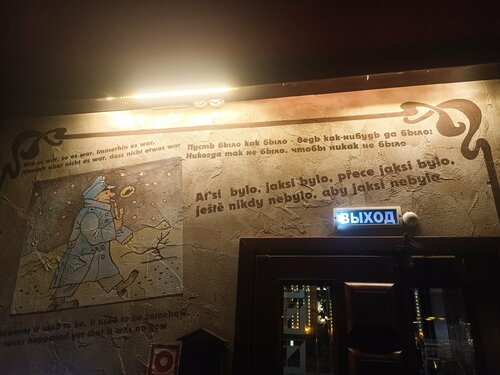 es war, so es war, immerhin es war,
aber nicht es war. dass nicht etwas war
Пусть было как было - ведь как-нибудь да было!
Никогда так не было, чтобы никак не было
Aťsi bylo, jaksi bylo, přece jaksi bylo,
ještě nikdy nebylo, aby jaksi nebylo
ВЫХОД
However it used to be, it used to be somehow,
never happened yet that it was no-how